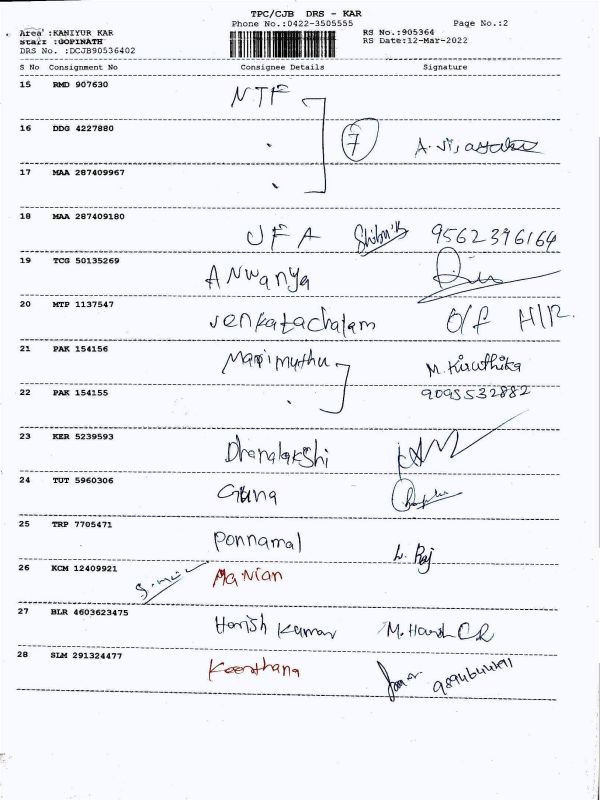 TPC/CJB DRS - KAR
Phone No.:0422-3505555
Page No.:2
Area :KANIYUR KAR
Staff :GOPINATH
DRS No. :DCJB90536402
RS No.:905364
RS Date:12-Mar-2022
S No Consignment No Consignee Details Signature
15 RMD 907630 NTF
16 DDG 4227880 7 A.
17 MAA 287409967
18 MAA 287409180 UFA Shibu 9562396164
19 TCG 50135269 ANwanya
20 MTP 1137547 venkatachalam O/f H/R.
21 PAK 154156 Marimuthu M. Kiruthika
22 PAK 154155 9095532882
23 KER 5239593 Dhanalakshi
24 TUT 5960306 Guna
25 TRP 7705471 Ponnamal L. Raj
26 KCM 12409921 Manian
27 BLR 4603623475 Harish Kumar M. Harish
28 SLM 291324477 Keerthana